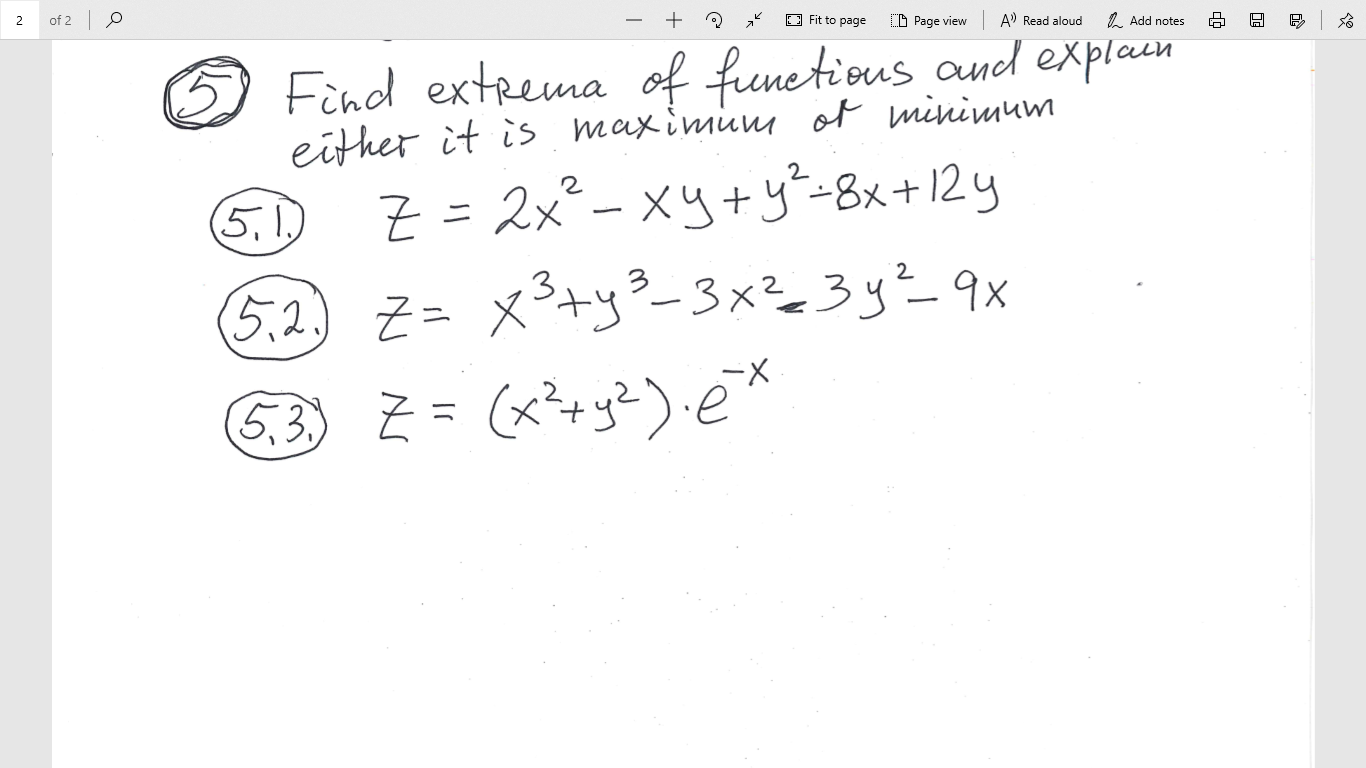 2 of 2 Fit to page Page view Read aloud Add notes
5 Find extrema of functions and explain
either it is maximum or minimum
5.1. Z = 2x² - xy + y² - 8x + 12y
5.2. Z = x³ + y³ - 3x² - 3y² - 9x
5.3. Z = (x² + y²) · e⁻ˣ